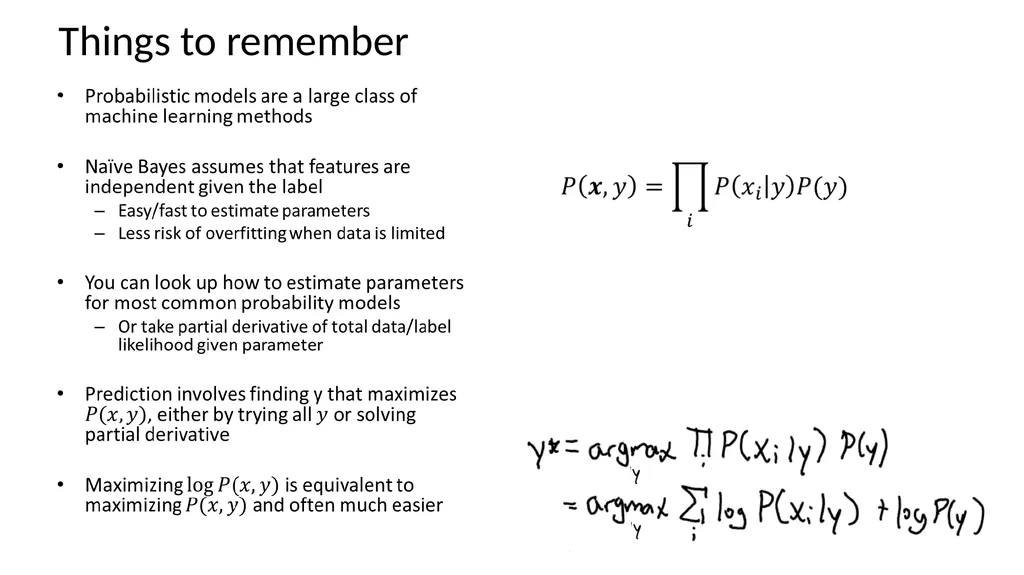 Things to remember
• Probabilistic models are a large class of
machine learning methods
• Naïve Bayes assumes that features are
independent given the label
– Easy/fast to estimate parameters
– Less risk of overfitting when data is limited
P(x, y) = ∏ P(xᵢ|y)P(y)
i
• You can look up how to estimate parameters
for most common probability models
– Or take partial derivative of total data/label
likelihood given parameter
• Prediction involves finding y that maximizes
P(x, y), either by trying all y or solving
partial derivative
• Maximizing log P(x, y) is equivalent to
maximizing P(x, y) and often much easier
y* = argmax ∏ P(xᵢ|y) P(y)
y i
= argmax ∑ log P(xᵢ|y) + log P(y)
y i